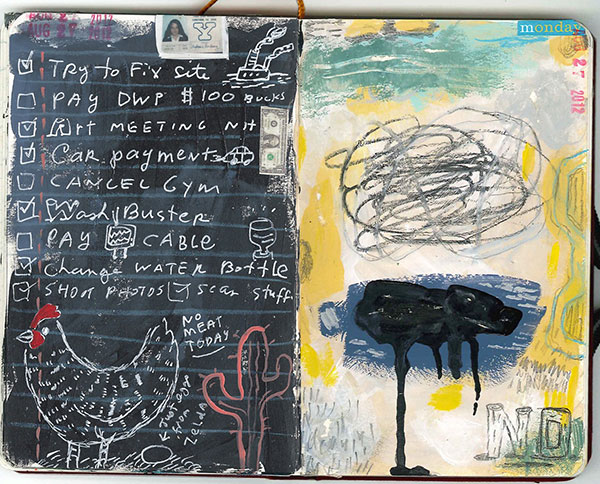 AUG 27 2012
TRY to Fix site
PAY DWP $100 BUCKS
Art MEETING NDT
Car payment
CANCEL Gym
Wash Buster
PAY CABLE
Change WATER Bottle
SHOOT PHOTOS SCAN STUFF
NO
MEAT
TODAY
monday
AUG 27 2012
NO